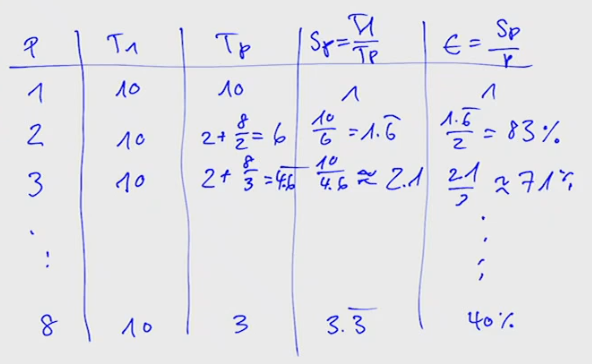 P T1 Tp Sp = T1/Tp E = Sp/p
1 10 10 1 1
2 10 2 + 8/2 = 6 10/6 = 1.6̅ 1.6̅/2 = 83%
3 10 2 + 8/3 = 4.6̅ 10/4.6 ≈ 2.1 2.1/3 ≈ 71%
⋮ ⋮
8 10 3 3.3̅ 40%